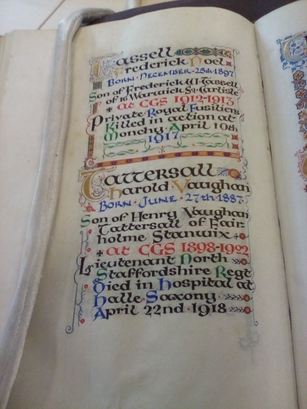 Tassell
Frederick Noel
Born · December · 25th 1897
Son of Frederick W. Tassell
of 16 Warwick Sq. Carlisle
at CGS 1912-1913
Private Royal Fusiliers
Killed in action at
Monchy April 10th
1917
Tattersall
Harold Vaughan
Born · June · 27th 1887
Son of Henry Vaughan
Tattersall of Fair-
holme Stanwix
at CGS 1898-1902
Lieutenant North
Staffordshire Regt
Died in Hospital at
Halle · Saxony
April 22nd · 1918